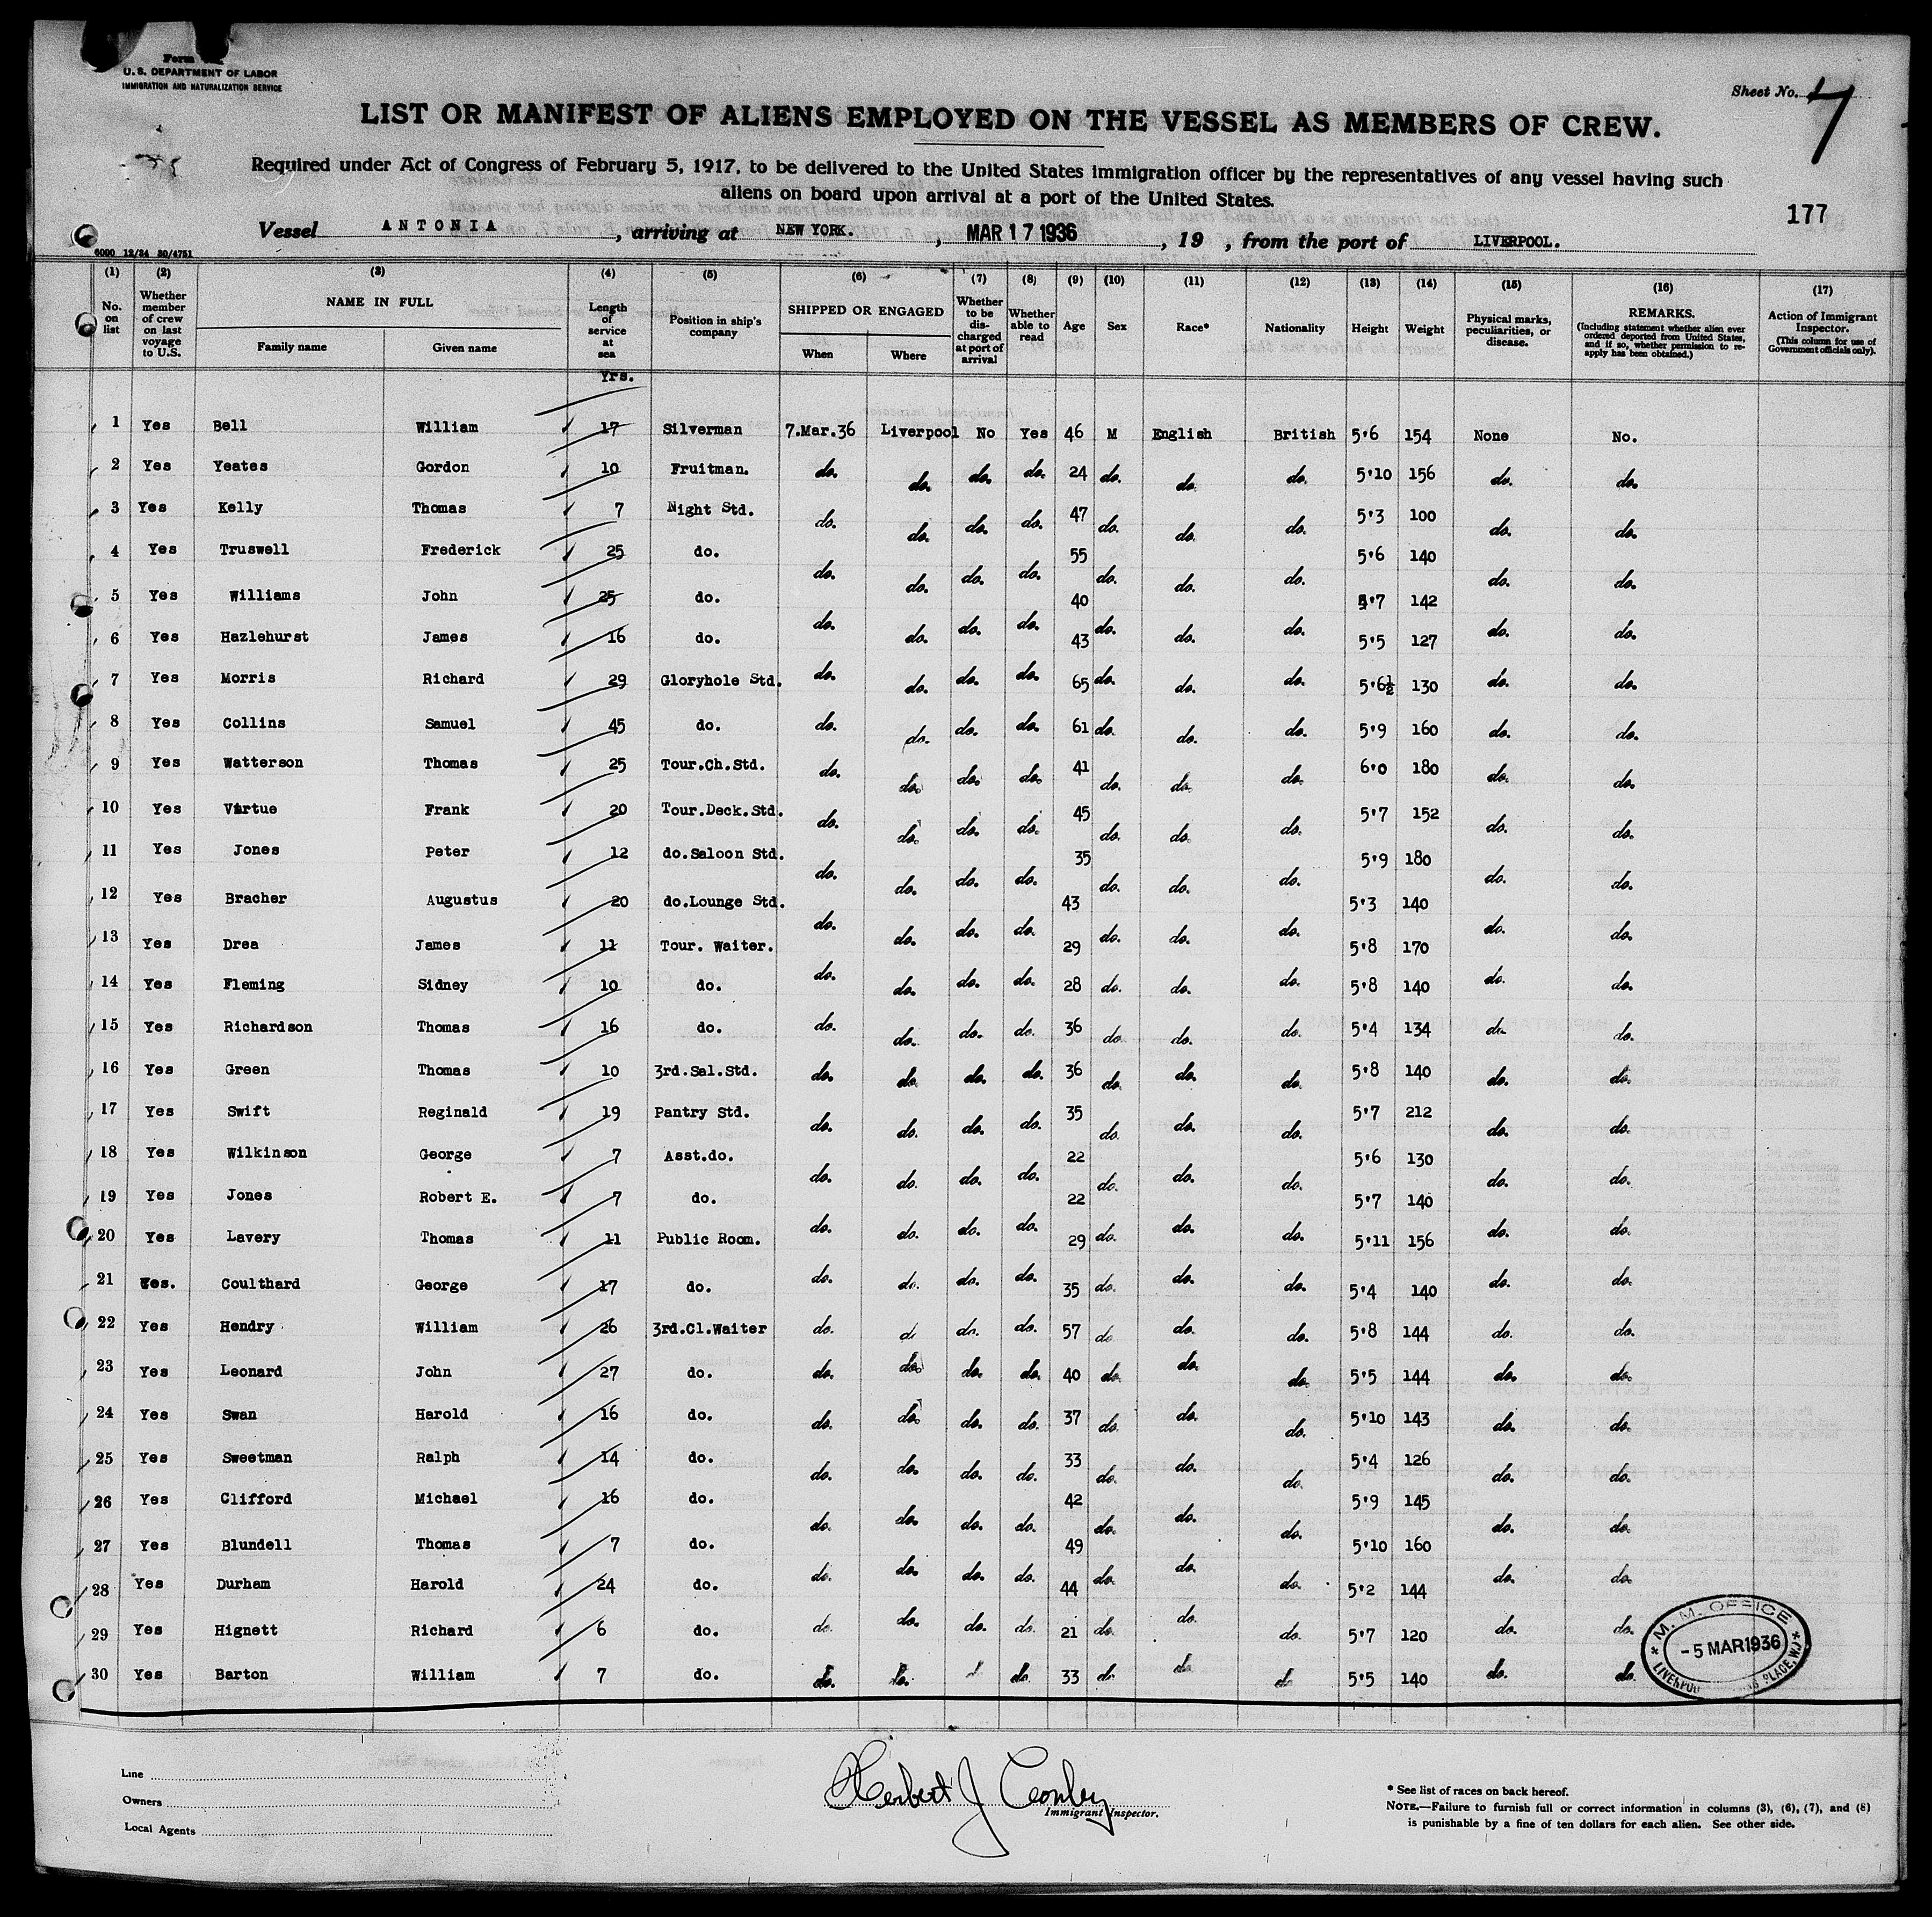 Form
U. S. DEPARTMENT OF LABOR
IMMIGRATION AND NATURALIZATION SERVICE
Sheet No. 7
LIST OR MANIFEST OF ALIENS EMPLOYED ON THE VESSEL AS MEMBERS OF CREW.
Required under Act of Congress of February 5, 1917, to be delivered to the United States immigration officer by the representatives of any vessel having such
aliens on board upon arrival at a port of the United States.
177
Vessel ANTONIA, arriving at NEW YORK., MAR 17 1936, 19 , from the port of LIVERPOOL.
6000 12/34 30/4751
(1) (2) (3) (4) (5) (6) (7) (8) (9) (10) (11) (12) (13) (14) (15) (16) (17)
No. on list
Whether member of crew on last voyage to U.S.
NAME IN FULL
Family name
Given name
Length of service at sea
Yrs.
Position in ship's company
SHIPPED OR ENGAGED
When
Where
Whether to be discharged at port of arrival
Whether able to read
Age
Sex
Race*
Nationality
Height
Weight
Physical marks, peculiarities, or disease.
REMARKS.
(Including statement whether alien ever ordered deported from United States, and if so, whether permission to reapply has been obtained.)
Action of Immigrant Inspector.
(This column for use of Government officials only).
1 Yes Bell William 17 Silverman 7.Mar.36 Liverpool No Yes 46 M English British 5'6 154 None No.
2 Yes Yeates Gordon 10 Fruitman. do. do. do. do. 24 do. do. do. 5'10 156 do. do.
3 Yes Kelly Thomas 7 Night Std. do. do. do. do. 47 do. do. do. 5'3 100 do. do.
4 Yes Truswell Frederick 25 do. do. do. do. do. 55 do. do. do. 5'6 140 do. do.
5 Yes Williams John 25 do. do. do. do. do. 40 do. do. do. 5'7 142 do. do.
6 Yes Hazlehurst James 16 do. do. do. do. do. 43 do. do. do. 5'5 127 do. do.
7 Yes Morris Richard 29 Gloryhole Std. do. do. do. do. 65 do. do. do. 5'6½ 130 do. do.
8 Yes Collins Samuel 45 do. do. do. do. do. 61 do. do. do. 5'9 160 do. do.
9 Yes Watterson Thomas 25 Tour.Ch.Std. do. do. do. do. 41 do. do. do. 6'0 180 do. do.
10 Yes Virtue Frank 20 Tour.Deck.Std. do. do. do. do. 45 do. do. do. 5'7 152 do. do.
11 Yes Jones Peter 12 do.Saloon Std. do. do. do. do. 35 do. do. do. 5'9 180 do. do.
12 Yes Bracher Augustus 20 do.Lounge Std. do. do. do. do. 43 do. do. do. 5'3 140 do. do.
13 Yes Drea James 11 Tour. Waiter. do. do. do. do. 29 do. do. do. 5'8 170 do. do.
14 Yes Fleming Sidney 10 do. do. do. do. do. 28 do. do. do. 5'8 140 do. do.
15 Yes Richardson Thomas 16 do. do. do. do. do. 36 do. do. do. 5'4 134 do. do.
16 Yes Green Thomas 10 3rd.Sal.Std. do. do. do. do. 36 do. do. do. 5'8 140 do. do.
17 Yes Swift Reginald 19 Pantry Std. do. do. do. do. 35 do. do. do. 5'7 212 do. do.
18 Yes Wilkinson George 7 Asst.do. do. do. do. do. 22 do. do. do. 5'6 130 do. do.
19 Yes Jones Robert E. 7 do. do. do. do. do. 22 do. do. do. 5'7 140 do. do.
20 Yes Lavery Thomas 11 Public Room. do. do. do. do. 29 do. do. do. 5'11 156 do. do.
21 Yes. Coulthard George 17 do. do. do. do. do. 35 do. do. do. 5'4 140 do. do.
22 Yes Hendry William 26 3rd.Cl.Waiter do. do. do. do. 57 do. do. do. 5'8 144 do. do.
23 Yes Leonard John 27 do. do. do. do. do. 40 do. do. do. 5'5 144 do. do.
24 Yes Swan Harold 16 do. do. do. do. do. 37 do. do. do. 5'10 143 do. do.
25 Yes Sweetman Ralph 14 do. do. do. do. do. 33 do. do. do. 5'4 126 do. do.
26 Yes Clifford Michael 16 do. do. do. do. do. 42 do. do. do. 5'9 145 do. do.
27 Yes Blundell Thomas 7 do. do. do. do. do. 49 do. do. do. 5'10 160 do. do.
28 Yes Durham Harold 24 do. do. do. do. do. 44 do. do. do. 5'2 144 do. do.
29 Yes Hignett Richard 6 do. do. do. do. do. 21 do. do. do. 5'7 120 do. do.
30 Yes Barton William 7 do. do. do. do. 33 do. do. do. 5'5 140 do. do.
M. M. OFFICE
- 5 MAR 1936
PLACE, W.1
Line
Owners
Local Agents
Herbert J Conley
Immigrant Inspector.
* See list of races on back hereof.
NOTE.—Failure to furnish full or correct information in columns (3), (6), (7), and (8)
is punishable by a fine of ten dollars for each alien. See other side.